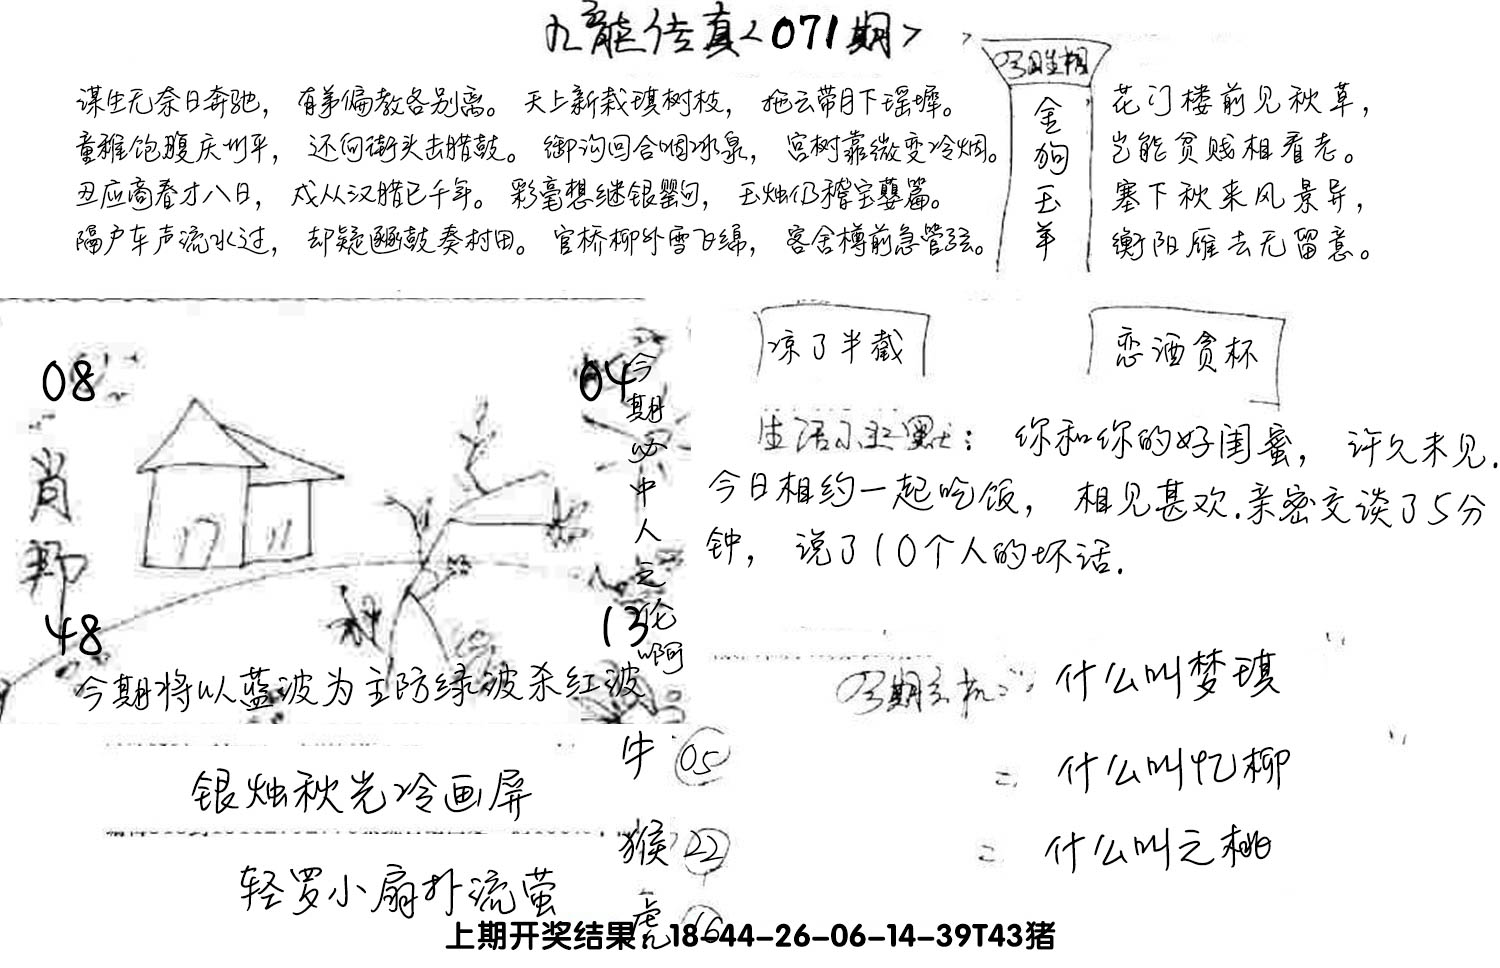 九龍传真<071期>
谋生无奈日奔驰，有弟偏教各别离。天上新栽琪树枝，拖云带月下瑶墀。
童稚饱腹庆州平，还向街头击腊鼓。御沟回合咽冰泉，宫树靠微变冷烟。
丑应商春才八日，戌从汉腊已千年。彩毫想继银罂句，玉烛仍稽宝蘷篇。
隔户车声流水过，却疑豳鼓奏村田。官桥柳外雪飞绵，客舍樽前急管弦。
今期生相
金狗玉羊
花门楼前见秋草，
岂能贫贱相看老。
塞下秋来风景异，
衡阳雁去无留意。
08
04
肖
48
13
今期必中人之伦啊
今期将以蓝波为主防绿波杀红波
凉了半截
恋酒贪杯
生活小幽默：你和你的好闺蜜，许久未见.
今日相约一起吃饭，相见甚欢.亲密交谈了5分
钟，说了10个人的坏话.
今期玄机：什么叫梦琪
= 什么叫忆柳
= 什么叫之桃
银烛秋光冷画屏
轻罗小扇扑流萤
牛 05
猴 22
虎 16
上期开奖结果：18-44-26-06-14-39T43猪